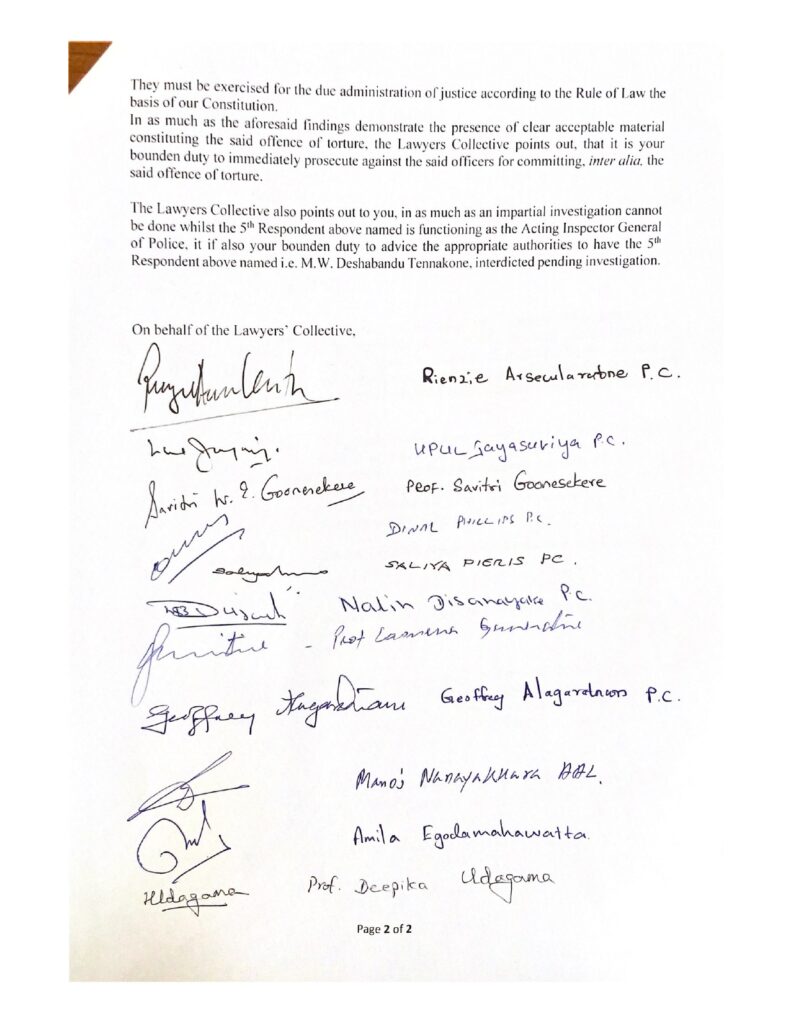 They must be exercised for the due administration of justice according to the Rule of Law the
basis of our Constitution.
In as much as the aforesaid findings demonstrate the presence of clear acceptable material
constituting the said offence of torture, the Lawyers Collective points out, that it is your
bounden duty to immediately prosecute against the said officers for committing, inter alia, the
said offence of torture.
The Lawyers Collective also points out to you, in as much as an impartial investigation cannot
be done whilst the 5th Respondent above named is functioning as the Acting Inspector General
of Police, it if also your bounden duty to advice the appropriate authorities to have the 5th
Respondent above named i.e. M.W. Deshabandu Tennakone, interdicted pending investigation.
On behalf of the Lawyers' Collective,
Rienzie Arsecularatne P.C.
UPUL Jayasuriya P.C.
Savitri W. E. Goonesekere Prof. Savitri Goonesekere
DINAL PHILLIPS P.C.
SALIYA PIERIS PC.
Nalin Disanayake P.C.
- Prof
Geoffrey Alagaratnam Geoffrey Alagaratnam P.C.
Manoj Nanayakkara AAL.
Amila Egodamahawatta.
Udagama Prof. Deepika Udagama
Page 2 of 2